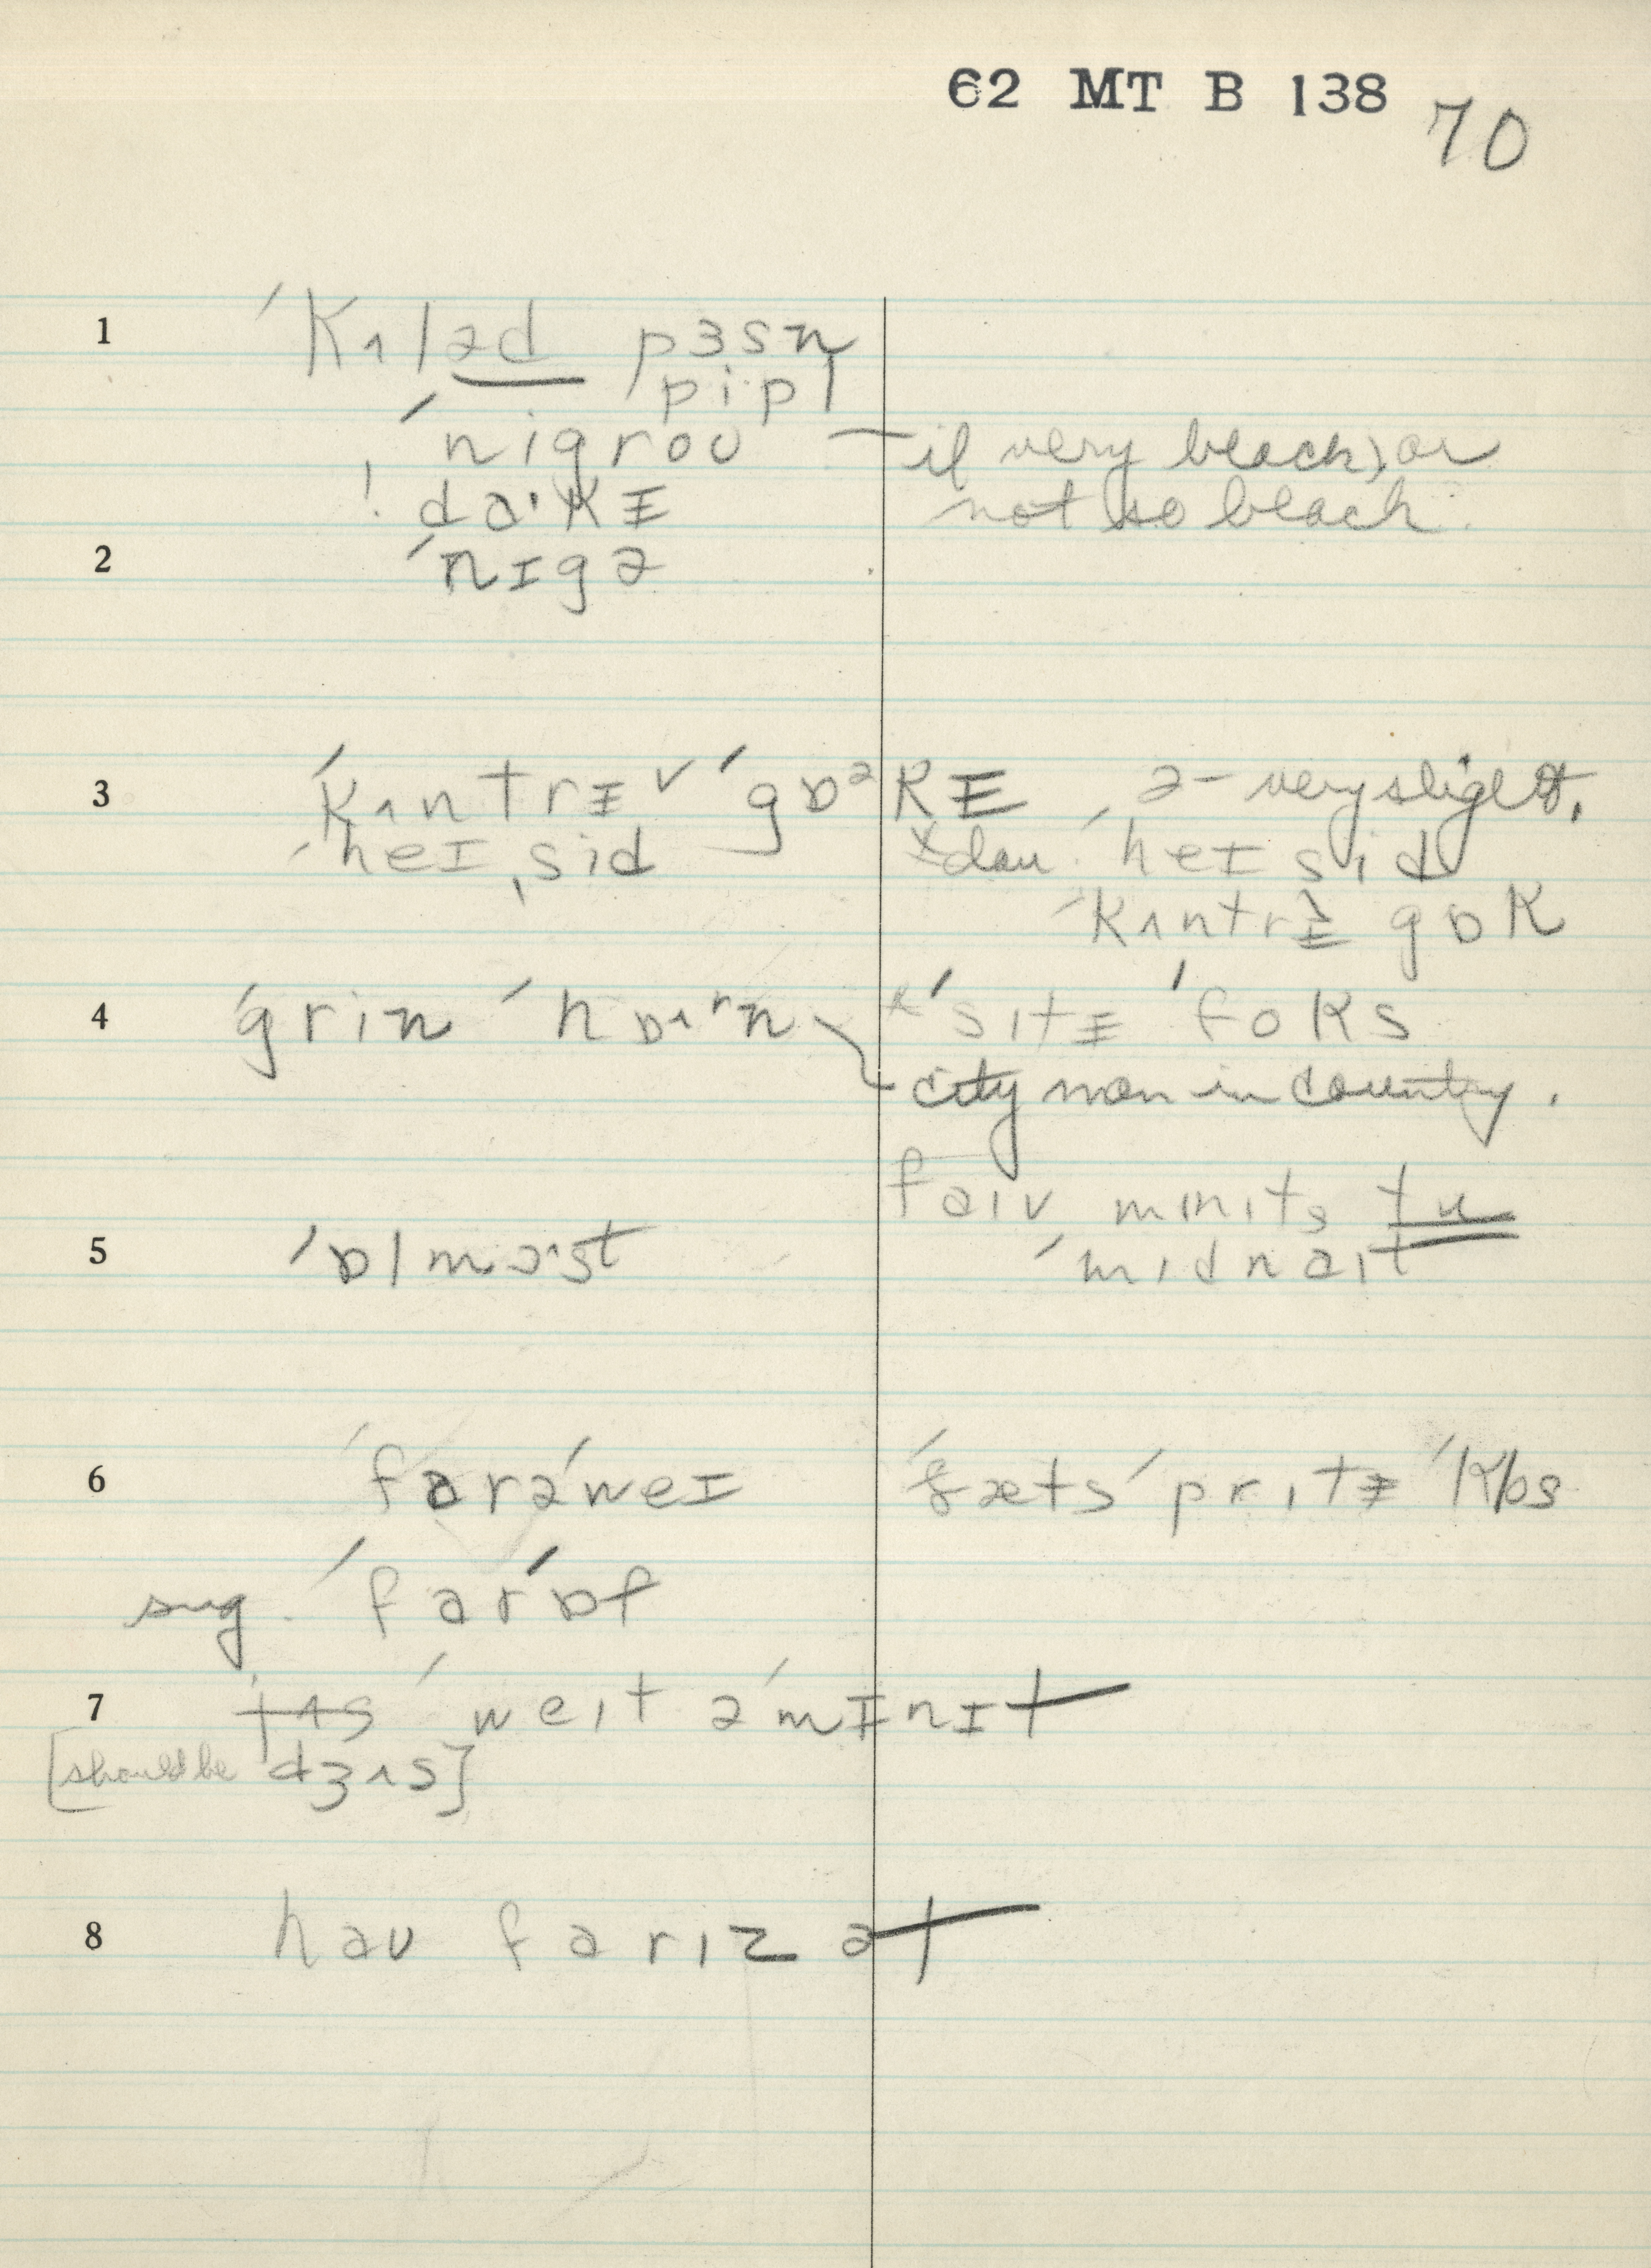 62 MT B 138
70
1 ˈkʌləd pɜsn
pipl
ˈnigroʊ — if very black, or
! daˑkɪ not so black.
2 ˈnɪgə
3 ˈkʌntrɪ ˅ ˈgɒᵊkɪ, ə - very slight.
ˈheɪˌsid ˣdaʊ ˈheɪ sid
ˈkʌntrɪ gɒk
4 ˈgrin ˈhɒʌʳn ˣˈsɪtɪ ˈfoks
city man in country.
faɪv mɪnɪts tu
5 ˈɒlmoˑst ˈmɪdnaɪt
6 ˈfarəˈweɪ ˈðæts ˈprɪtɪ ˈklɒs
sug. ˈfarˈɒf
7 tʌs ˈweɪt əˈmɪnɪt
[should be dʒʌs]
8 haʊ farɪz ət